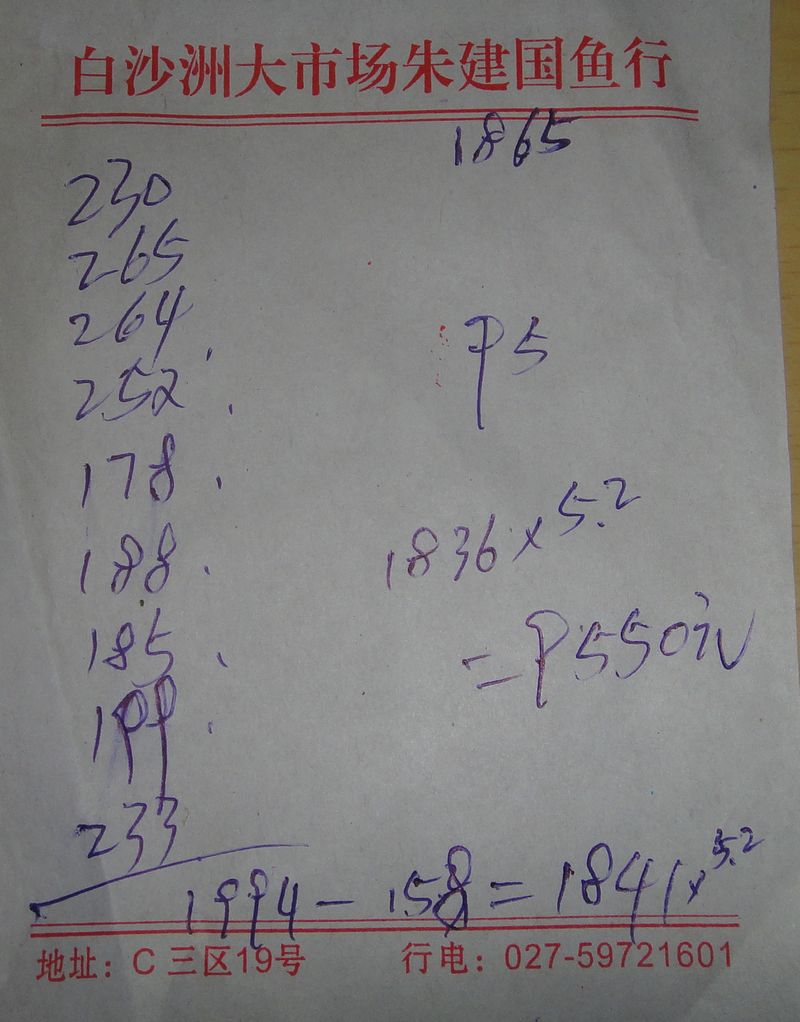 白沙洲大市场朱建国鱼行
1865
230
265
264
252
95
178
1836×5.2
188
=9550元
185
199
233
1994-158=1841×5.2
地址：C三区19号 行电：027-59721601